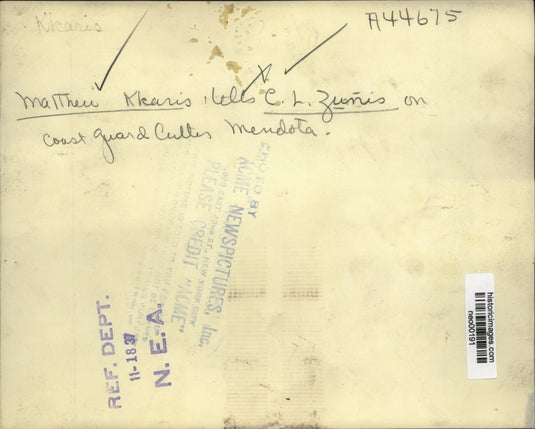 Kkaris
A44675
Matthew Kkaris, tells C. L. Zunis on
Coast Guard Cutter Mendota.
PHOTO BY
ACME NEWSPICTURES, Inc.
EAST 42nd ST., NEW YORK CITY
PLEASE CREDIT "ACME"
REF. DEPT.
11-18 37
N. E. A.
historicimages.com
neo00191